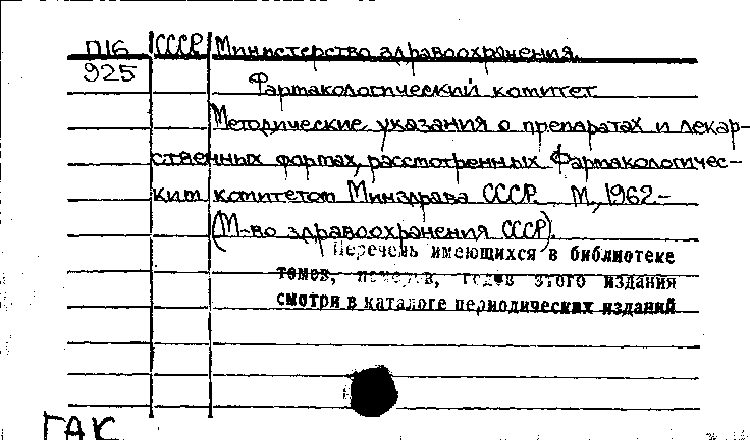 П16 СССР. Министерство здравоохранения.
925 Фармакологический комитет.
Методические указания о препаратах и лекар-
ственных формах, рассмотренных Фармакологичес-
ким комитетом Минздрава СССР. М., 1962.-
(М-во здравоохранения СССР).
Перечень имеющихся в библиотеке
томов, номеров, годов этого издания
смотри в каталоге периодических изданий
ГАК